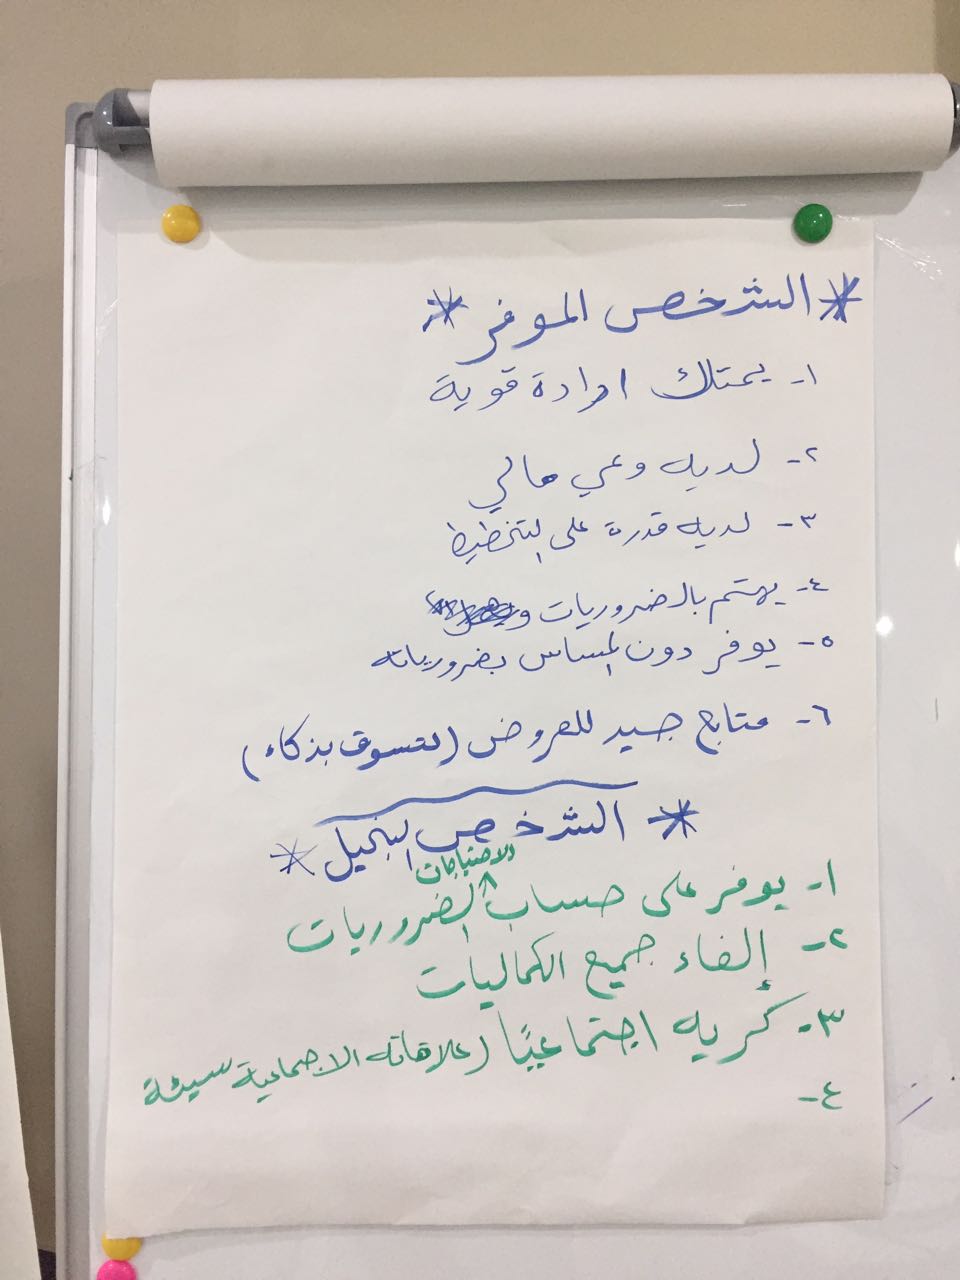 * الشخص الموفر *
١- يمتلك ارادة قوية
٢- لديه وعي مالي
٣- لديه قدرة على التخطيط
٤- يهتم بالضروريات و
٥- يوفر دون المساس بضرورياته
٦- متابع جيد للعروض (لتسوق بذكاء)
* الشخص البخيل *
الاحتياجات
١- يوفر على حساب الضروريات
٢- إلغاء جميع الكماليات
٣- كريه اجتماعيًا (علاقاته الاجتماعية سيئة
٤-